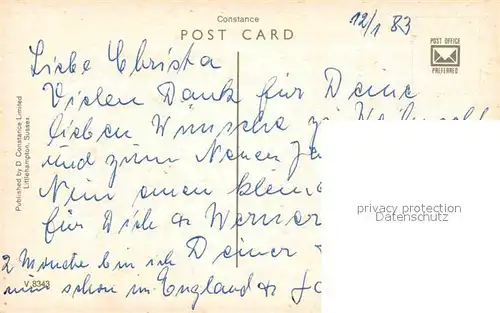 Constance
POST CARD
12/1 83
POST OFFICE
PREFERRED
Liebe Christa
Vielen Dank für Deine
lieben Wünsche
und zum Neuen
einen kleinen
für Dich & Werner
2 Monate bin ich Deiner
schon in England &
Published by D. Constance Limited
Littlehampton, Sussex.
V.8343
privacy protection
Datenschutz